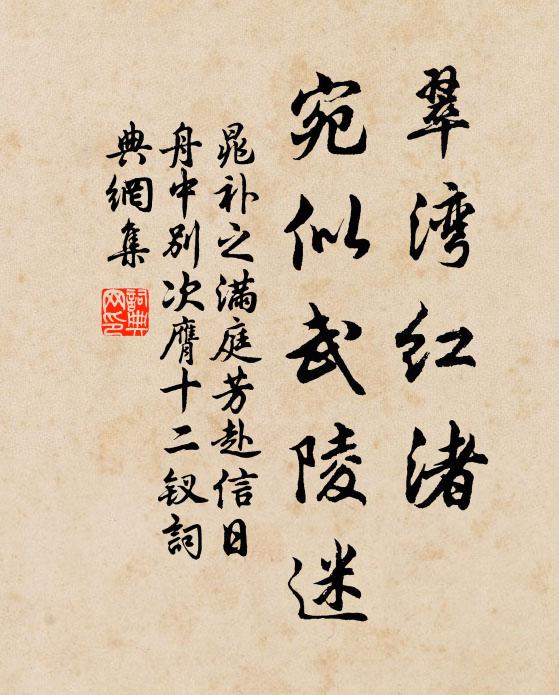 翠湾红渚
宛似武陵迷
晁补之满庭芳赴信日
舟中别次膺十二钗詞
典網集
詞典網印